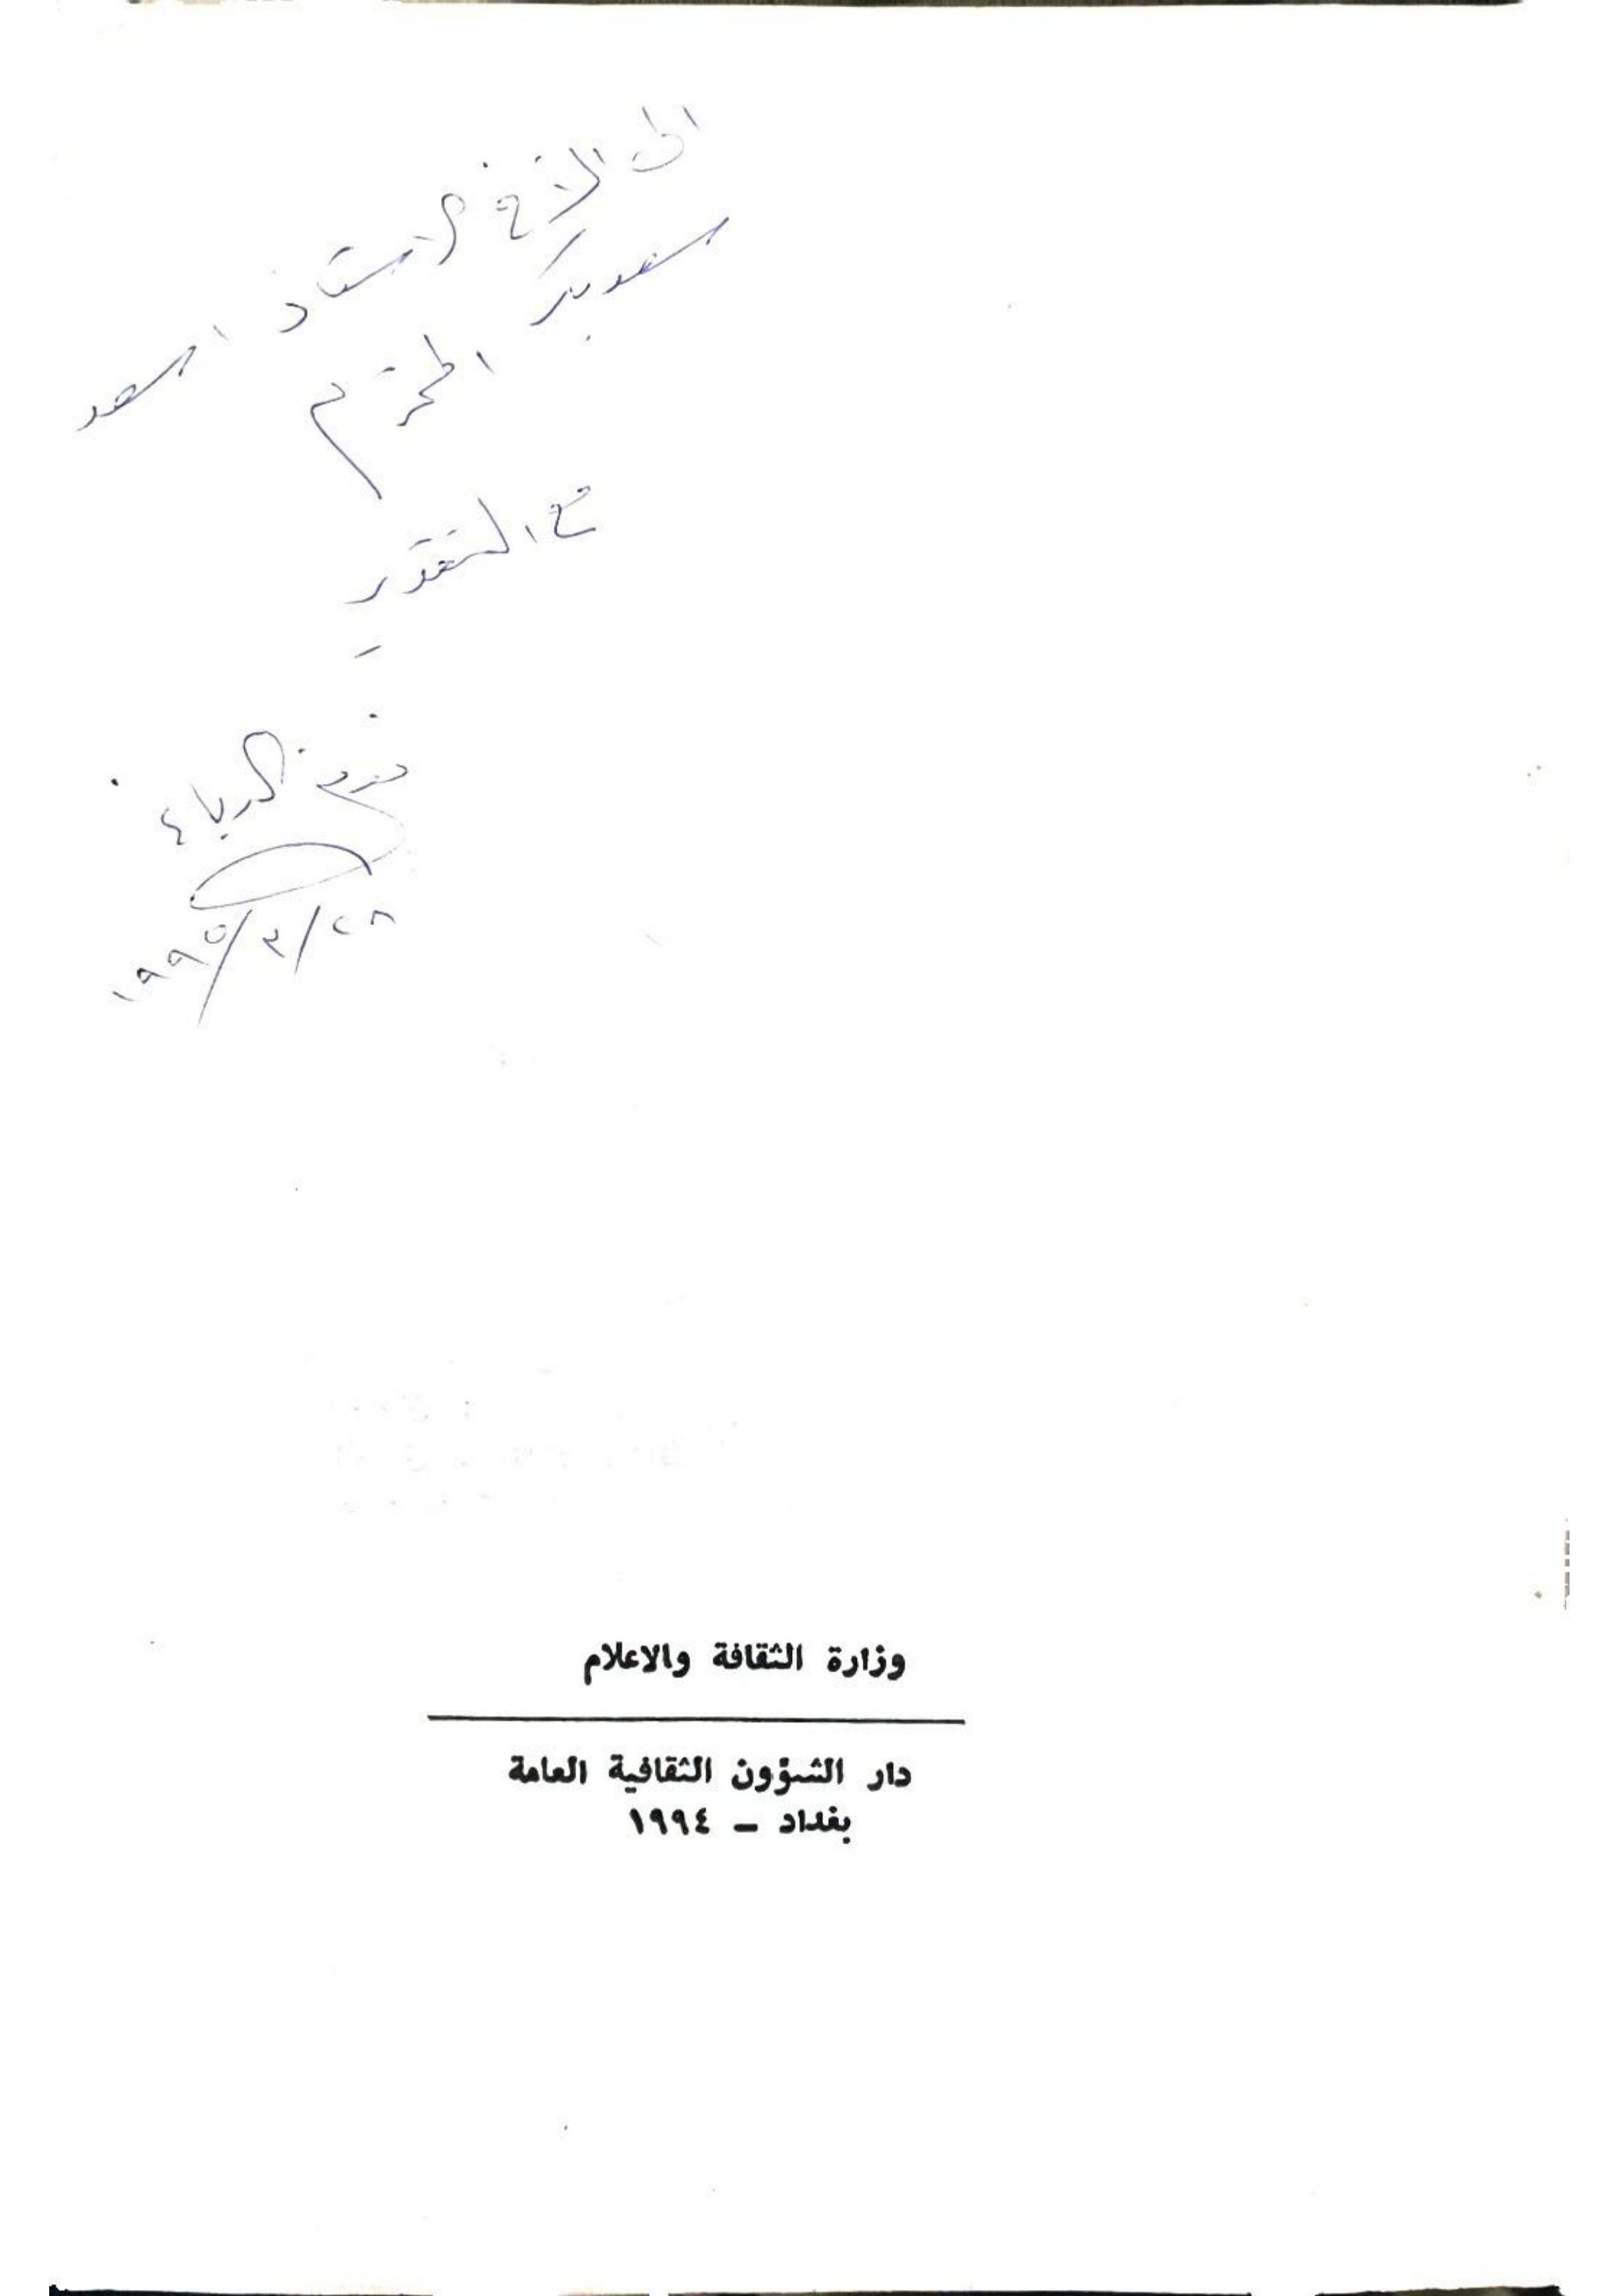 الى الأخ الاستاذ اسعد
سعد بك
المحترم
مع التقدير
٢٨/٣/١٩٩٥
وزارة الثقافة والاعلام
دار الشؤون الثقافية العامة
بغداد – ١٩٩٤